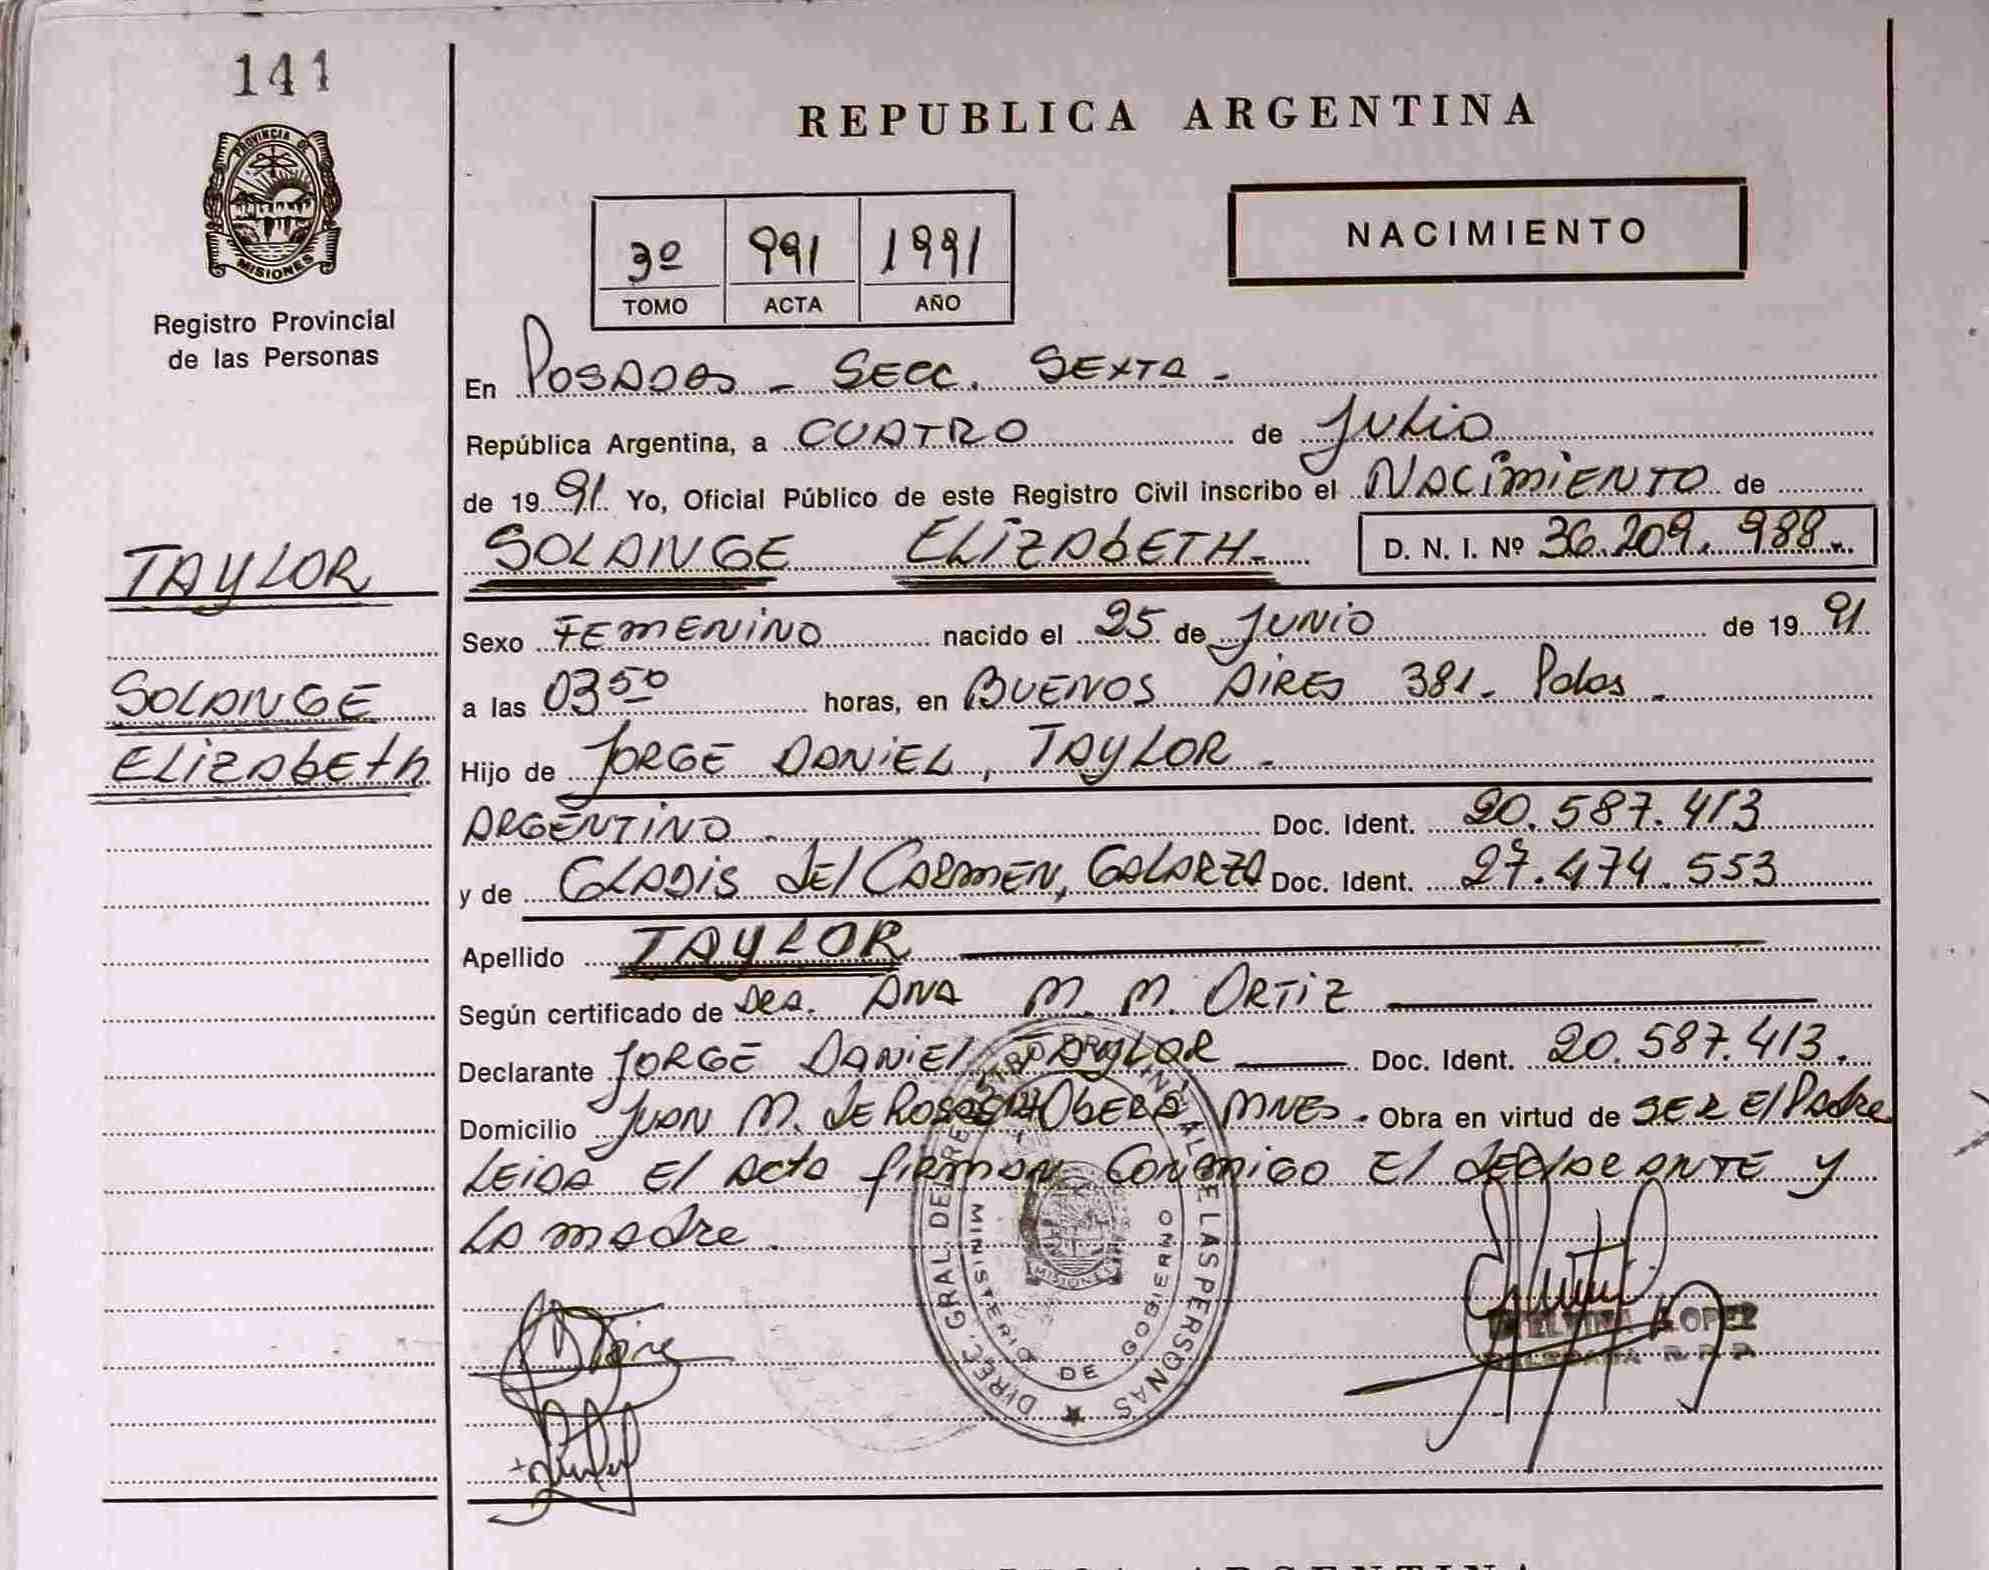 141
PROVINCIA DE
MISIONES
Registro Provincial
de las Personas
TAYLOR
SOLANGE
ELIZAbETh
REPUBLICA ARGENTINA
3º 991 1991
TOMO ACTA AÑO
NACIMIENTO
En POSADAS - SECC. SEXTA -
República Argentina, a CUATRO de JULIO
de 1991. Yo, Oficial Público de este Registro Civil inscribo el NACIMIENTO de
SOLANGE ELIZAbETH- D. N. I. Nº 36.209.988-
Sexo FEMENINO nacido el 25 de JUNIO de 1991
a las 03 50 horas, en BUENOS AIRES 381- Pdas -
Hijo de JORGE DANIEL, TAYLOR -
ARGENTINO - Doc. Ident. 20.587.413
y de GLADIS del CARMEN, GALARZA Doc. Ident. 27.474.553
Apellido TAYLOR
Según certificado de DRA. ANA M. M. ORTIZ
Declarante JORGE DANIEL TAYLOR Doc. Ident. 20.587.413.
Domicilio JUAN M. de ROSAS OBERA MNES. Obra en virtud de SER El Padre
LEIDA El Acta firman CONmIGO El declarANTE y
LA madre.
DIREC. GRAL. DE REGISTRO PROVINCIAL DE LAS PERSONAS
MINISTERIO DE GOBIERNO
MISIONES
LOPEZ
R. P. P.